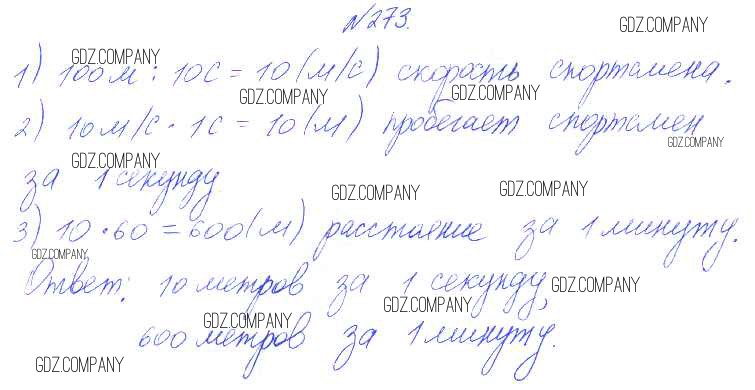 №273.
1) 100м : 10с = 10 (м/с) скорость спортсмена.
2) 10м/с · 1с = 10 (м) пробегает спортсмен
за 1 секунду
3) 10 · 60 = 600 (м) расстояние за 1 минуту.
Ответ: 10 метров за 1 секунду,
600 метров за 1 минуту.
GDZ.COMPANY
GDZ.COMPANY
GDZ.COMPANY
GDZ.COMPANY
GDZ.COMPANY
GDZ.COMPANY
GDZ.COMPANY
GDZ.COMPANY
GDZ.COMPANY
GDZ.COMPANY
GDZ.COMPANY
GDZ.COMPANY
GDZ.COMPANY